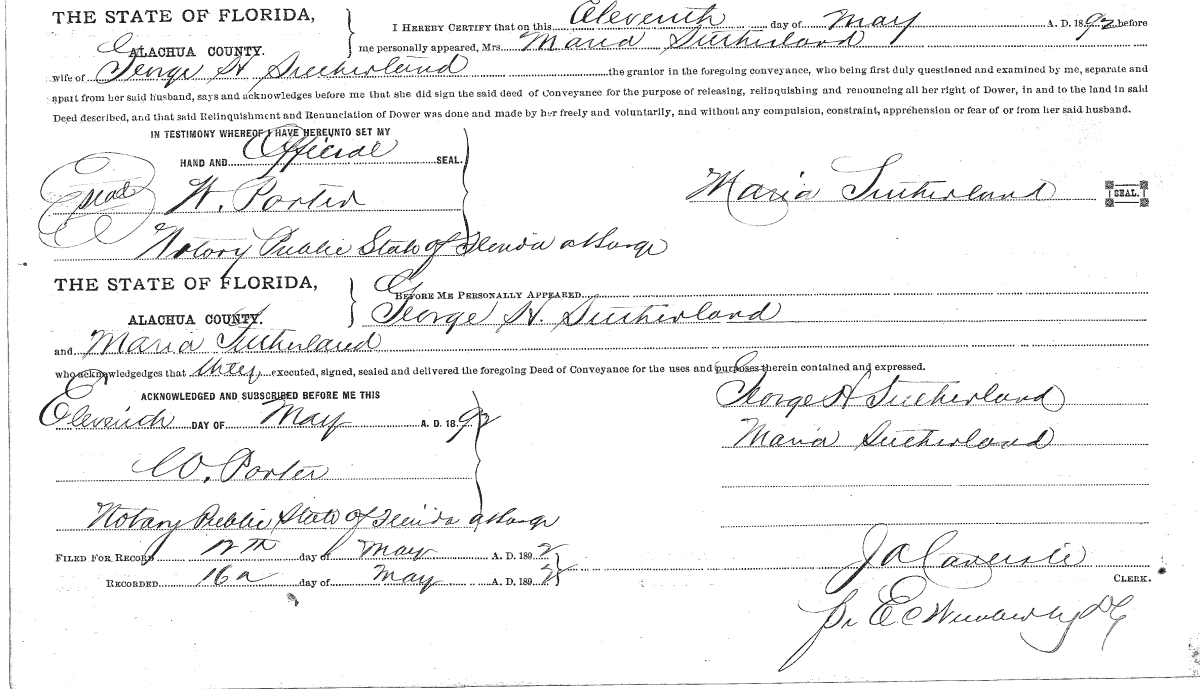 THE STATE OF FLORIDA,
I HEREBY CERTIFY that on this Eleventh day of May A. D. 1892 before
ALACHUA COUNTY.
me personally appeared, Mrs. Maria Sutherland
wife of George H Sutherland the grantor in the foregoing conveyance, who being first duly questioned and examined by me, separate and
apart from her said husband, says and acknowledges before me that she did sign the said deed of Conveyance for the purpose of releasing, relinquishing and renouncing all her right of Dower, in and to the land in said
Deed described, and that said Relinquishment and Renunciation of Dower was done and made by her freely and voluntarily, and without any compulsion, constraint, apprehension or fear of or from her said husband.
IN TESTIMONY WHEREOF I HAVE HEREUNTO SET MY
HAND AND Official SEAL.
Seal W. Porter
Maria Sutherland SEAL.
Notary Public State of Florida at Large
THE STATE OF FLORIDA,
BEFORE ME PERSONALLY APPEARED
ALACHUA COUNTY. George H. Sutherland
and Maria Sutherland
who acknowledgedges that they executed, signed, sealed and delivered the foregoing Deed of Conveyance for the uses and purposes therein contained and expressed.
ACKNOWLEDGED AND SUBSCRIBED BEFORE ME THIS
George H Sutherland
Eleventh DAY OF May A. D. 1892
Maria Sutherland
W. Porter
Notary Public State of Florida at Large
FILED FOR RECORD 12th day of May A. D. 1892
J A
RECORDED 16 day of May A. D. 189
CLERK.
E C